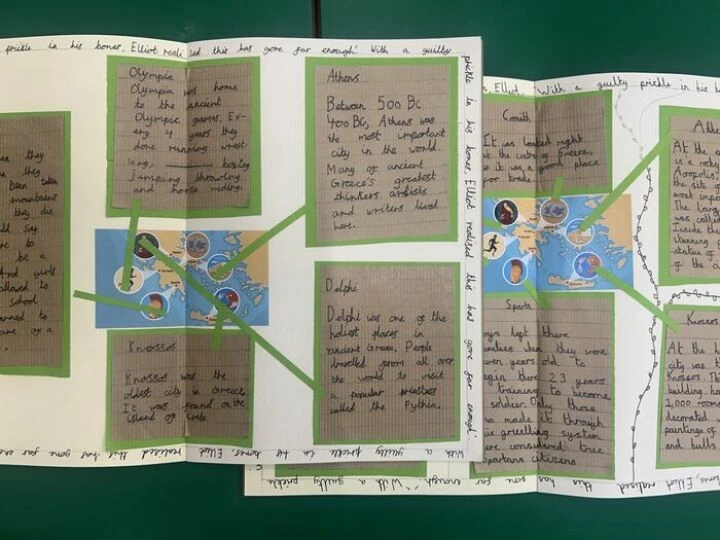 prickle in his bones, Elliot realised this has gone far enough! With a guilty
prickle in his bones, Elliot realised this has gone far enough!
With a guilty prickle in his bones, Elliot realised this has gone far en
Olympia
Olympia was home
to the ancient
Olympic games. Ev-
ery 4 years they
done running wrest-
ling, boxing
jumping throwing
and horse riding.
Athens
Between 500 BC
400 BC, Athens was
the most important
city in the world.
Many of ancient
Greece's greatest
thinkers artists
and writers lived
here.
en they
n they
been taken
mountains
they die
ld say
re to
be a
And girls
allowed to
school
rned to
are of a
Knossos
Knossos was the
oldest city in Greece.
It was found on the
island of Crete
Delphi
Delphi was one of the
holiest places in
ancient Greece. People
travelled from all over
the world to visit
a popular priestess
called the Pythia.
s, Elliot, With a guilty prickle in his bo
Corinth
It was located right
at the centre of Greece,
so it was a good place
for trade
Sparta
oys left there
amilies when they were
even years old to
egin there 23 years
training to become
soldier. Only those
ho made it through
is gruelling system
are considered true
Spartans citizens
Athe
At the c
is a rocky
Acropolis,
the site o
most imp
The larg
was calle
Inside the
stunning
statue of
of the ci
Knossos
At the h
city was t
Knossos. Th
building ha
1,000 rooms
decorated
paintings of
and bulls
bones, Elliot realised this has gone far enough! With a guilty prickle